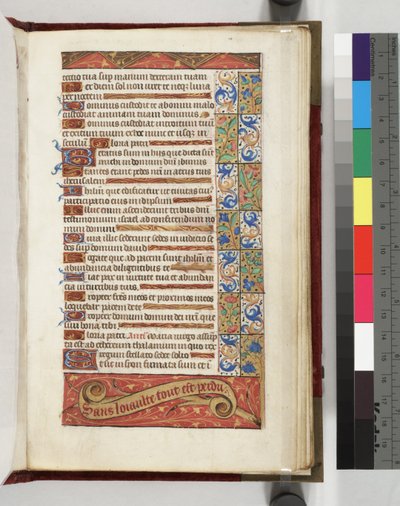 tectio tua sup manum dexteram tuam
Per diem sol non uret te neq luna
per noctem
Dominus custodit te ab omni malo
custodiat animam tuam dominus
Dominus custodiat introitum tuu
et exitum tuum ex hoc nunc et usq in
seculu Gloria patri
Letatus sum in his que dicta sut
michi in domum domini ibimus
Stantes erant pedes nri in atriis tuis
iherusalem
Ihrlm que edificatur ut civitas cui
participatio eius in idipsum
Illuc enim ascenderunt tribus dni
testimonium israel ad confitendum no
mini domini
Quia illic sederunt sedes in iudicio se
des sup domum david
Rogate que ad pacem sunt ihrlm et
abundancia diligentibus te
Fiat pax in virtute tua et abundan
cia in turribus tuis
Propter fratres meos et proximos meos
loquebar pacem de te
Propter domum domini dei nri que
sivi bona tibi
Gloria patri Maria virgo assup
ta est ad ethereum thalamum in quo rex
regum stellato sedet solio
Sans loiaulte tout est perdu